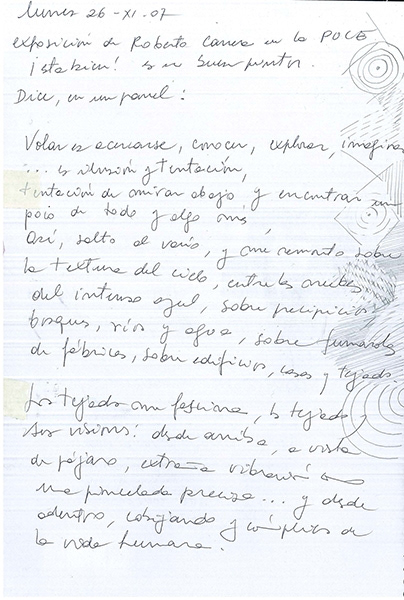 lunes 26-XI.07
exposición de Roberto Carrera en la POCE
¡stabien! es un buen pintor.
Dice, en un panel:
Volar es acercarse, conocer, explorar, imaginar
... es ilusión y tentación,
tentación de mirar abajo y encontrar un
poco de todo y algo más
Así, salto al vacío, y me remonto sobre
la textura del cielo, entre las nubes
del intenso azul, sobre precipicios
bosques, ríos y agua, sobre fumarolas
de fábricas, sobre edificios, casas y tejados.
Los tejados me fascinan, los tejados y
sus visiones: desde arriba, a vista
de pájaro, extraña vibración
una pincelada precisa... y desde
adentro, cobijando y cómplices de
la vida humana.